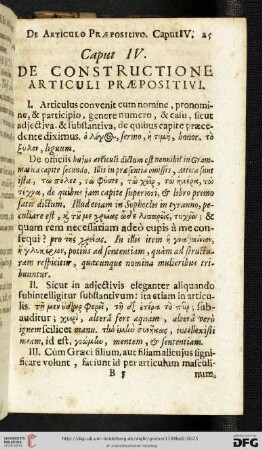 DE ARTICULO PRÆPOSITIVO. Caput IV. 25
Caput IV.
DE CONSTRUCTIONE
ARTICULI PRÆPOSITIVI.
I. Articulus convenit cum nomine, pronomi-
ne, & participio, genere numero, & casu, sicut
adjectiva. & substantiva, de quibus capite præce-
dente diximus. ὁ λόγος, sermo, ἡ τιμὴ, honor. τὸ
ξύλον, lignum.
De officiis hujus articuli dictum est nonnihil in Gram-
matica capite secundo. Illis in præsentia omissis, Attica sunt
ista, τὼ πόλεε, τὼ
de quibus jam capite superiori, & libro primo
satis dictum. Illud etiam in Sophoclis in tyranno, pe-
culiare est, &
quam rem necessariam adeo cupis à me con-
sequi? pro τῆς χρείας. In illis item ἡ
ἡ potius ad sententiam, quàm ad structu-
ram respicitur, quæcunque nomina mulieribus tri-
buuntur.
II. Sicut in adjectivis eleganter aliquando
subintelligitur substantivum: ita etiam in articu-
lis. τῇ μὲν ὕδωρ φέρει, τῇ δὲ ἑτέρᾳ τὸ πῦρ, sub-
auditur; χειρὶ, alterâ fert aquam, alterâ verò
ignem scilicet manu. intellexisti
meam, id est, γνώμην, mentem, & sententiam.
III. Cùm Græci filium, aut filiam alicujus signi-
ficare volunt, faciunt id per articulum masculi-
B 5 num,
http://digi.ub.uni-heidelberg.de/diglit/
UNIVERSITÄTS-
BIBLIOTHEK
HEIDELBERG
Gefördert durch
DFG